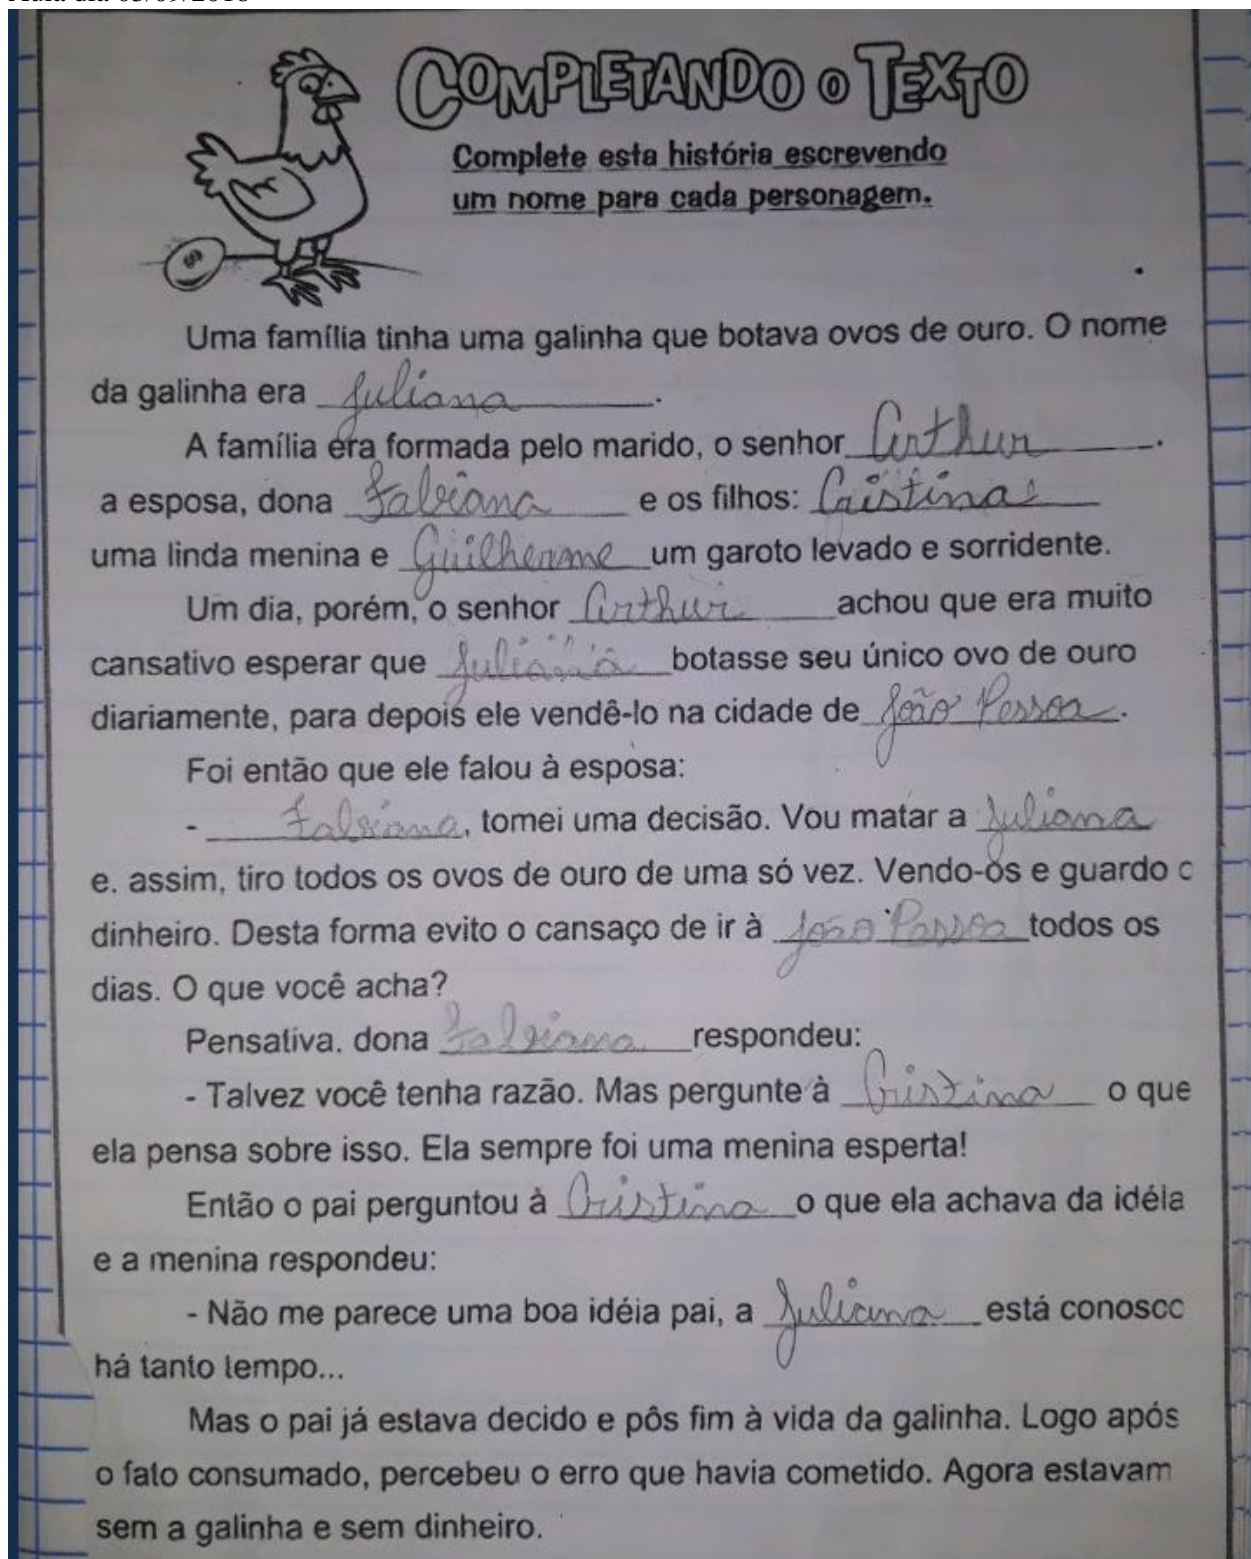 COMPLETANDO O TEXTO
Complete esta história escrevendo
um nome para cada personagem.
$
Uma família tinha uma galinha que botava ovos de ouro. O nome
da galinha era Juliana.
A família era formada pelo marido, o senhor Arthur.
a esposa, dona Fabiana e os filhos: Cristina
uma linda menina e Guilherme um garoto levado e sorridente.
Um dia, porém, o senhor Arthur achou que era muito
cansativo esperar que Juliana botasse seu único ovo de ouro
diariamente, para depois ele vendê-lo na cidade de João Pessoa.
Foi então que ele falou à esposa:
- Fabiana, tomei uma decisão. Vou matar a Juliana
e. assim, tiro todos os ovos de ouro de uma só vez. Vendo-os e guardo o
dinheiro. Desta forma evito o cansaço de ir à João Pessoa todos os
dias. O que você acha?
Pensativa. dona Fabiana respondeu:
- Talvez você tenha razão. Mas pergunte à Cristina o que
ela pensa sobre isso. Ela sempre foi uma menina esperta!
Então o pai perguntou à Cristina o que ela achava da idéia
e a menina respondeu:
- Não me parece uma boa idéia pai, a Juliana está conosco
há tanto tempo...
Mas o pai já estava decido e pôs fim à vida da galinha. Logo após
o fato consumado, percebeu o erro que havia cometido. Agora estavam
sem a galinha e sem dinheiro.